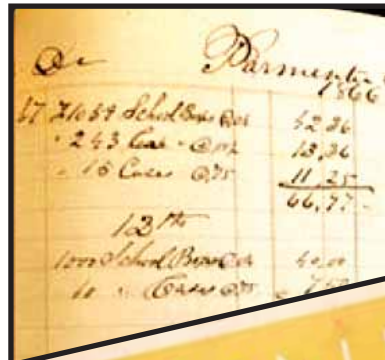 Dr Parmenter
1866
17 To 1059 School Boxes @04 42,36
" 243 " @5½ 13,36
" 15 Cases @75 11,25
66,97
13th
1000 School Boxes @04 40,00
10 " Cases @75 7,50